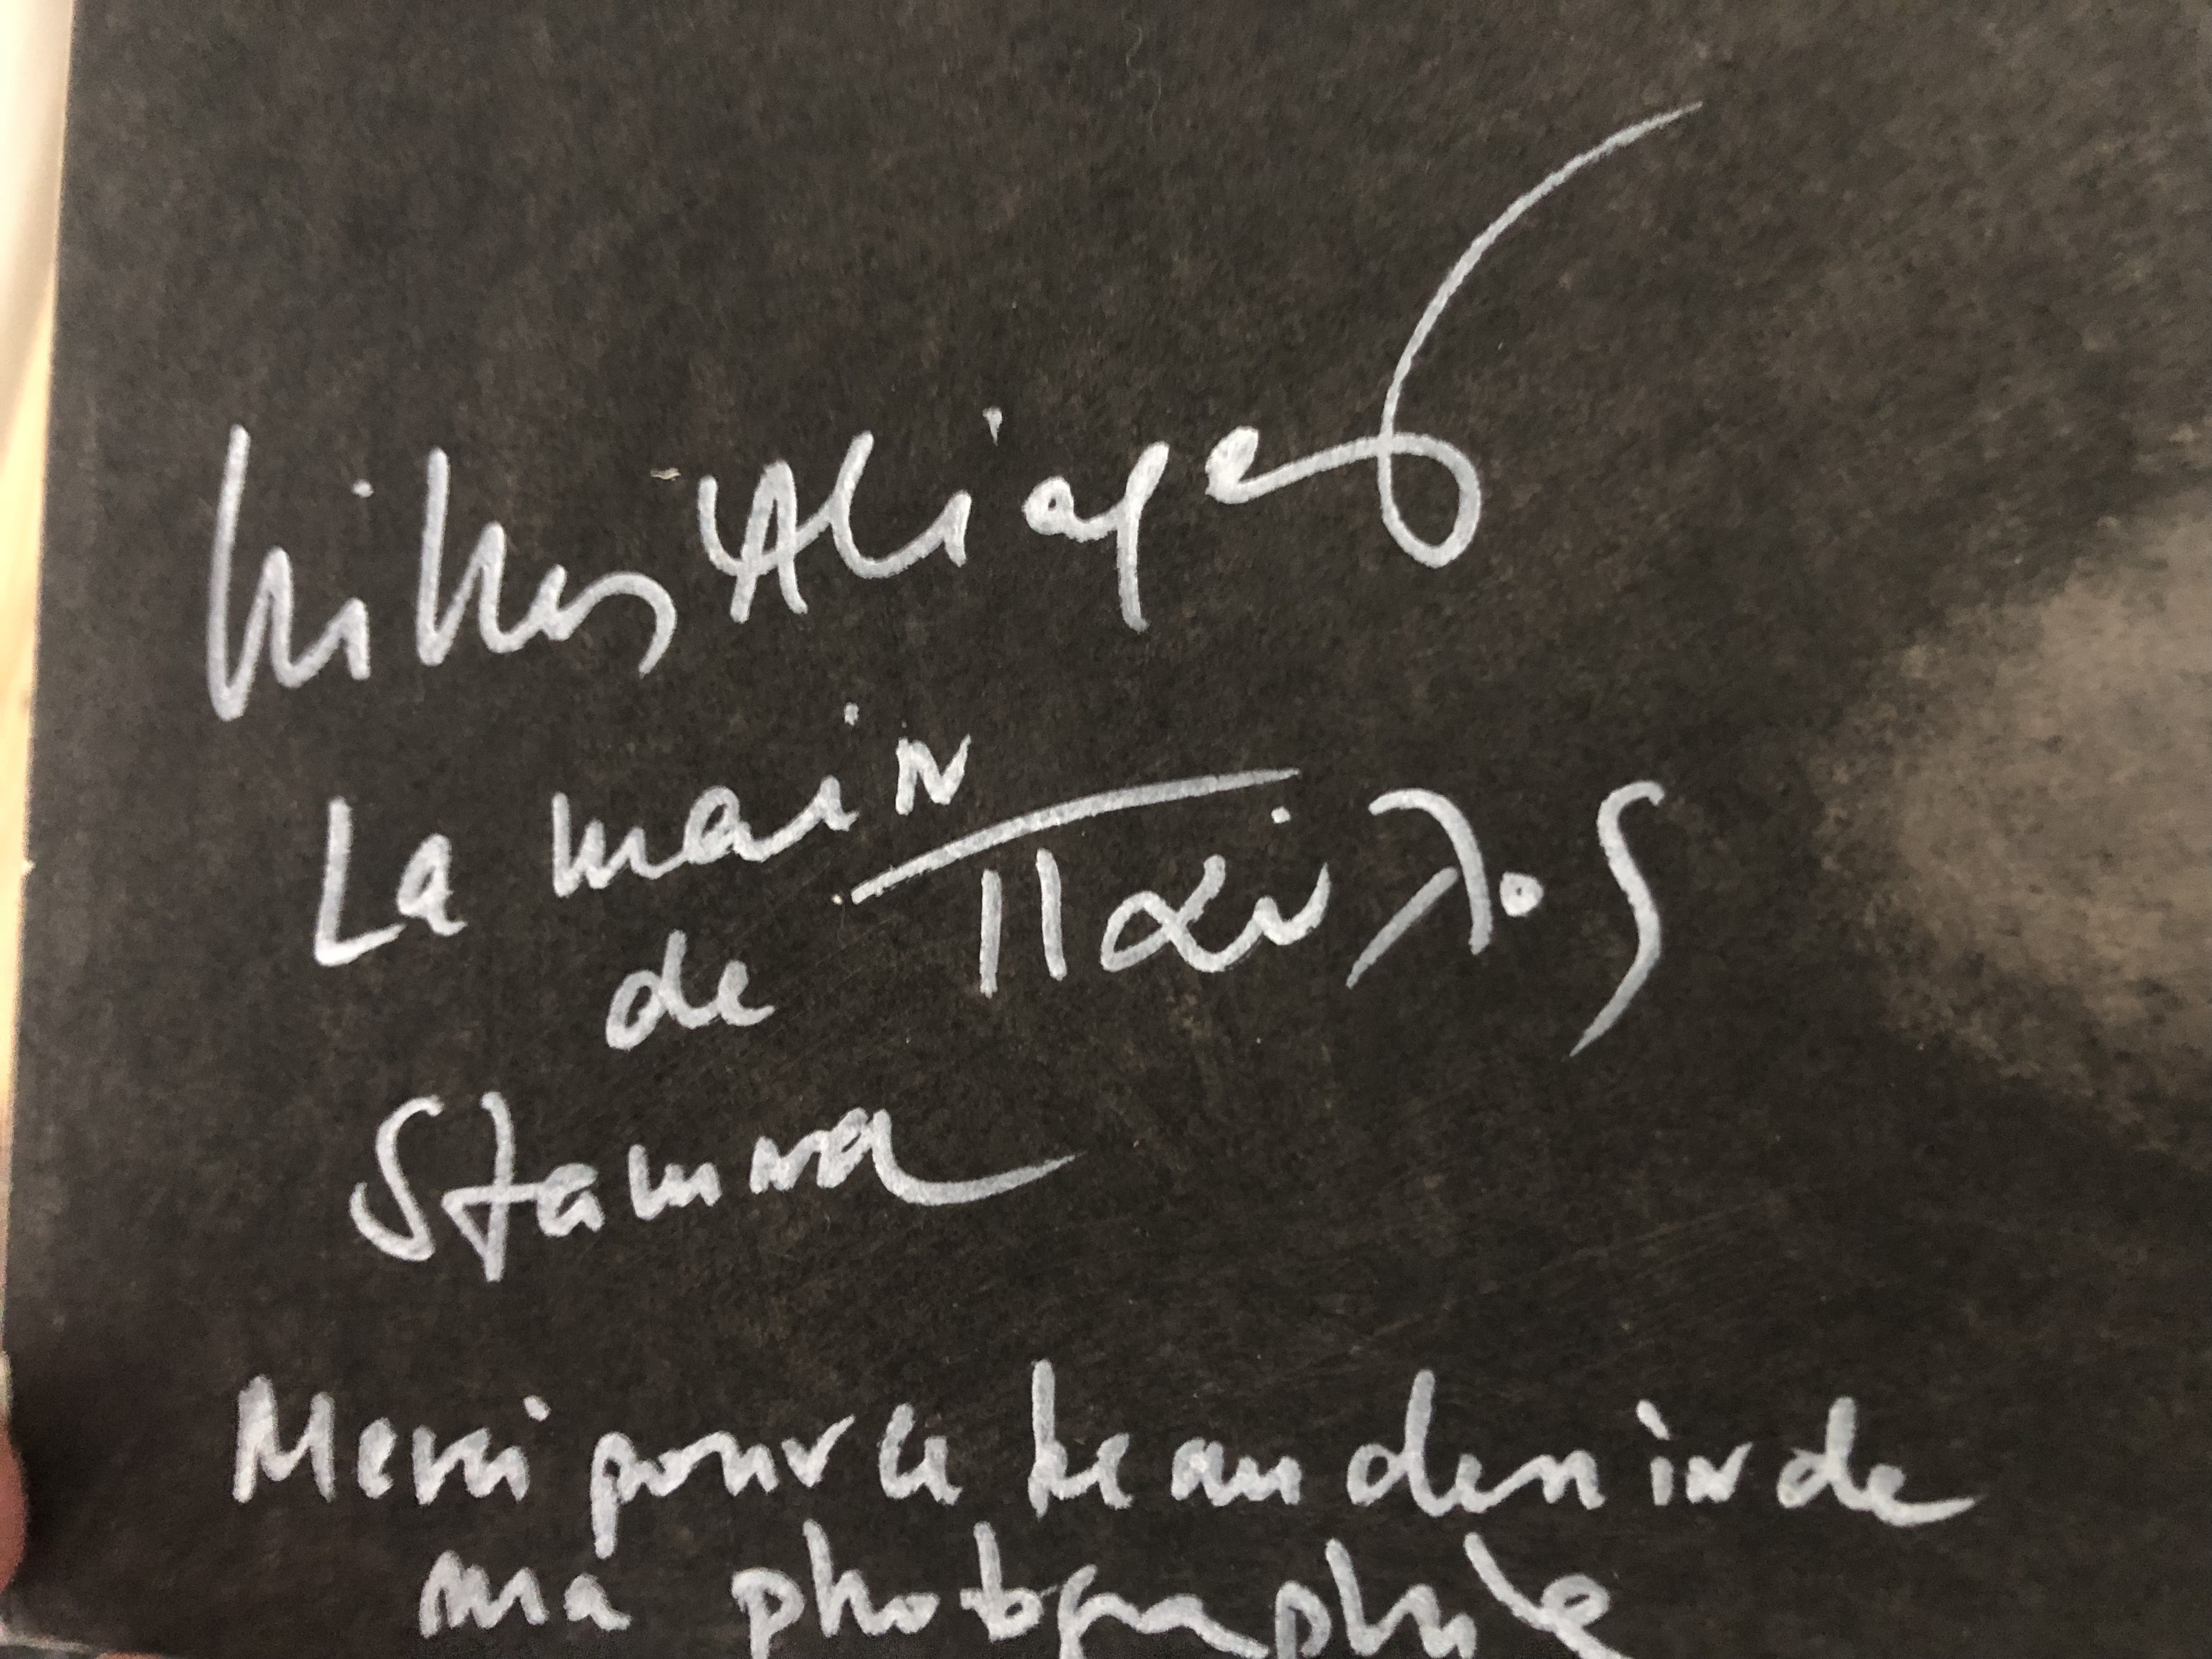 Nikos Aliagas
La main
de Παύλος
Stamna
Merci pour le beau dessin de
ma photographie